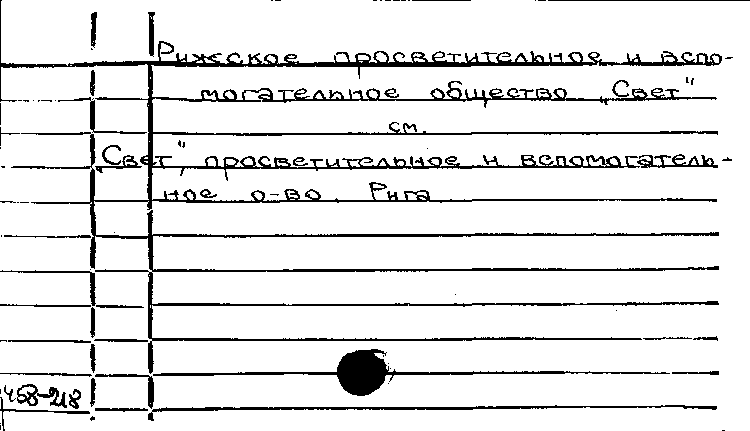 Рижское просветительное и вспо-
могательное общество „Свет"
см.
„Свет", просветительное и вспомогатель-
ное о-во. Рига
458-218